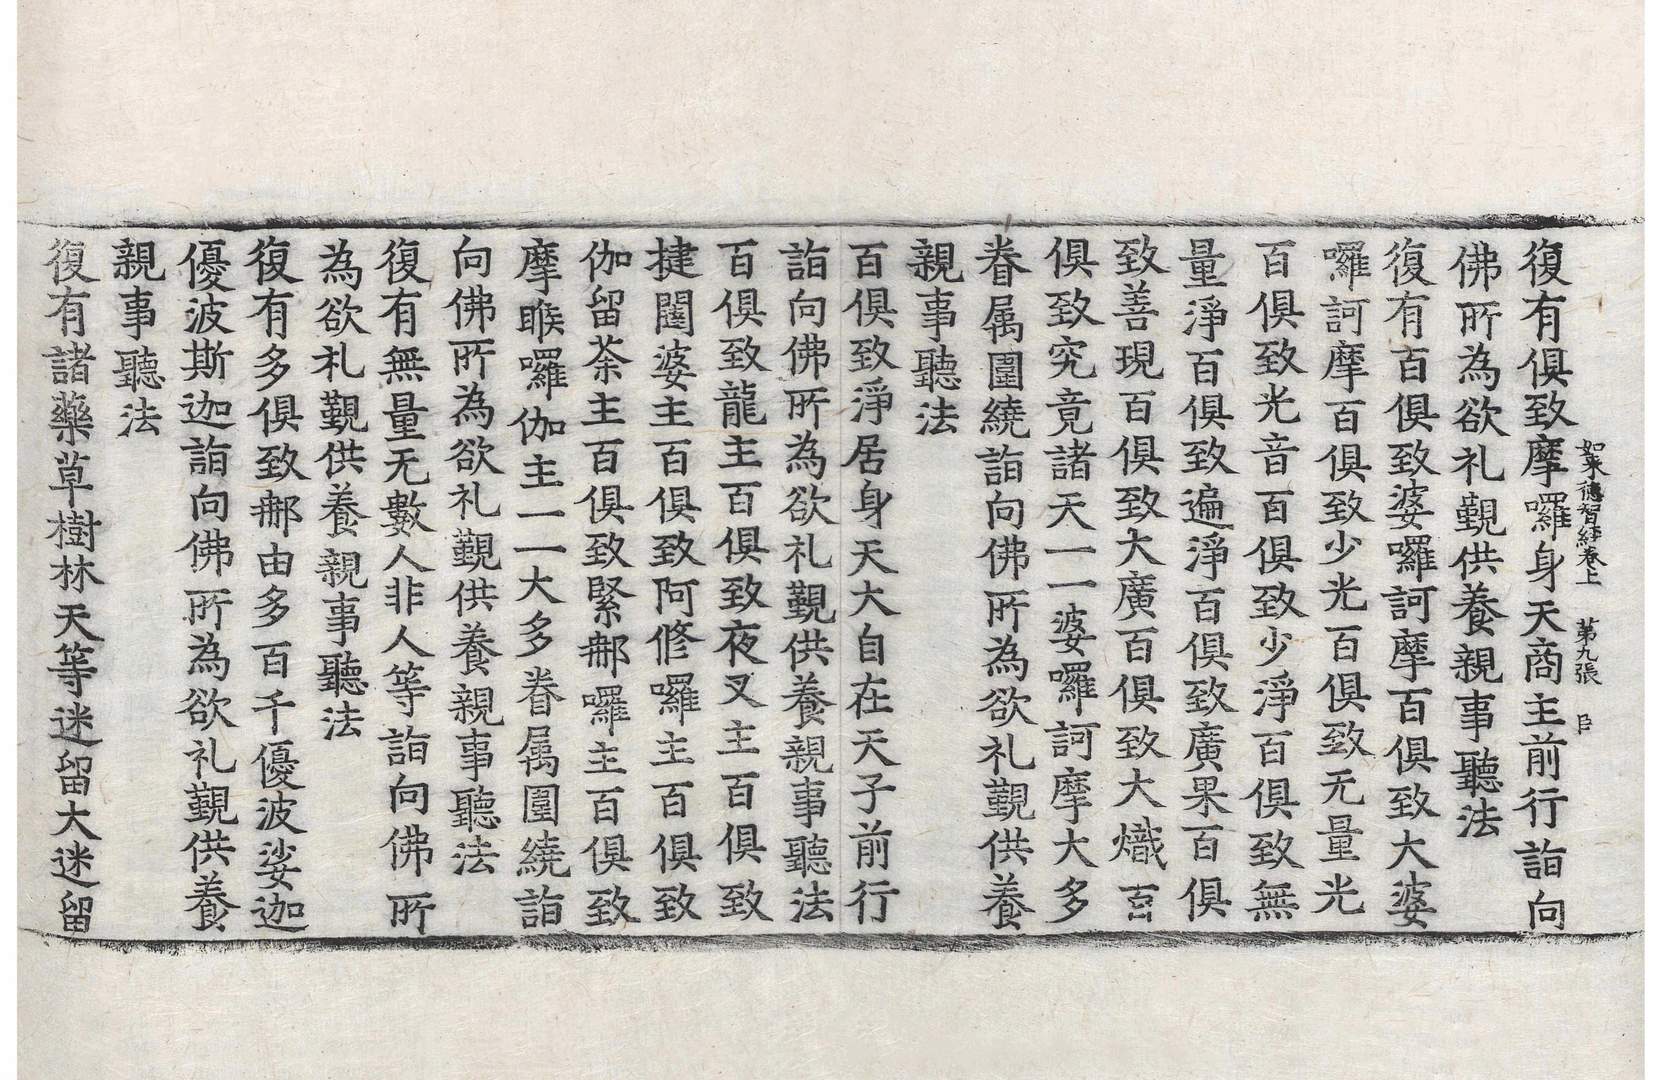 如来德智經卷上　第九張　臣
復有俱致摩囉身天商主前行詣向
佛所為欲礼覲供養親事聽法
復有百俱致婆囉訶摩百俱致大婆
囉訶摩百俱致少光百俱致无量光
百俱致光音百俱致少淨百俱致無
量淨百俱致遍淨百俱致廣果百俱
致善現百俱致大廣百俱致大熾百
俱致究竟諸天一一婆囉訶摩大多
眷属圍繞詣向佛所為欲礼覲供養
親事聽法
百俱致淨居身天大自在天子前行
詣向佛所為欲礼覲供養親事聽法
百俱致龍主百俱致夜叉主百俱致
揵闥婆主百俱致阿修囉主百俱致
伽留荼主百俱致緊那囉主百俱致
摩睺囉伽主一一大多眷属圍繞詣
向佛所為欲礼覲供養親事聽法
復有無量无數人非人等詣向佛所
為欲礼覲供養親事聽法
復有多俱致那由多百千優波娑迦
優波斯迦詣向佛所為欲礼覲供養
親事聽法
復有諸藥草樹林天等迷留大迷留